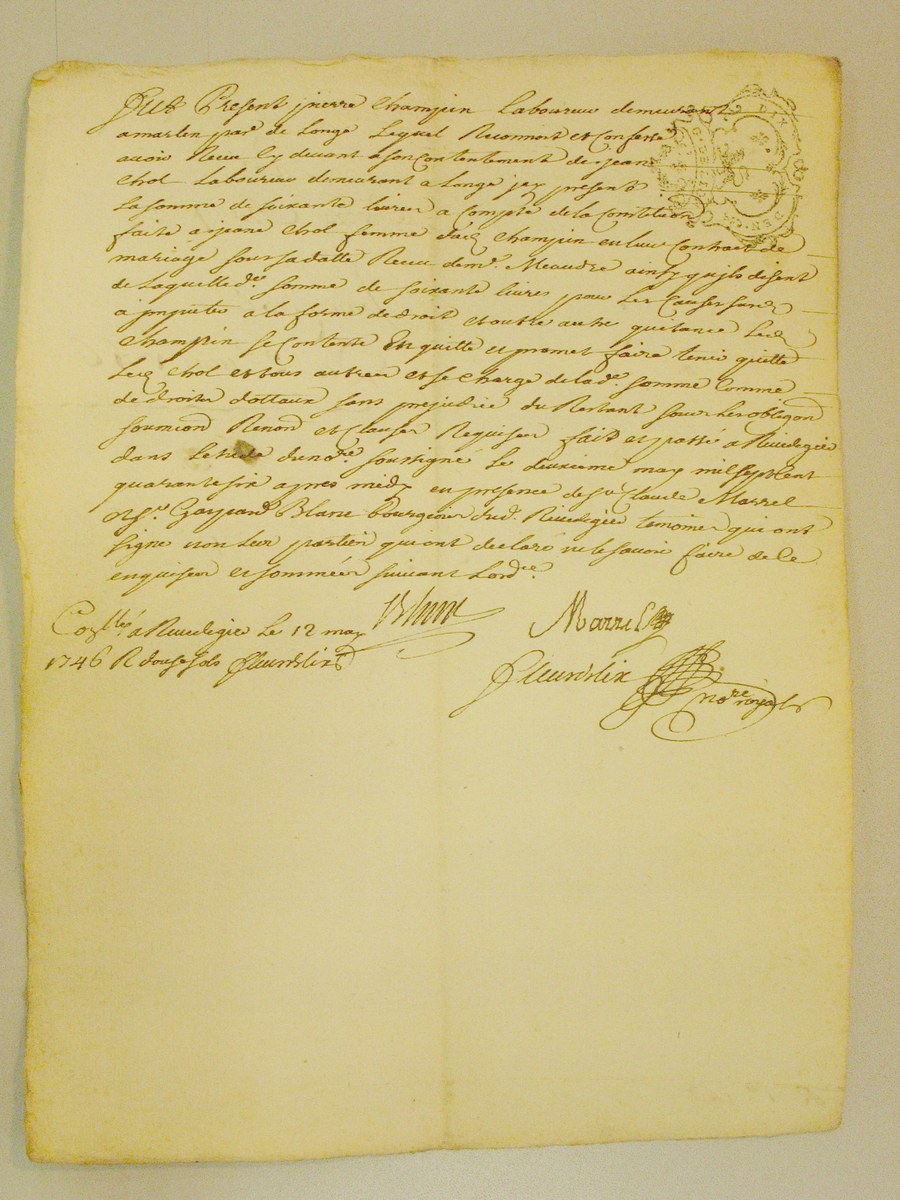 Fut Present pierre Champin Laboureur demeurant
a marlin parr. de Longe Lequel Reconnoit et Confesse
avoir Receu Cy devant a son Contentement de jean
Chol Laboureur demeurant a Longe jcy present
La somme de soixante livres a Compte de la Constitution
faite a jeane Chol femme dud Champin en leur Contract de
mariage sous sa datte Receu de me. Meaudre ainsy qujls disent
de Laquelle de. somme de soixante livres pour Les Causes susd
a jmputer a la forme de droit et outre autre quitance Led
Champin se Contente En quitte et promet faire tenir quitte
Led Chol et tous autres et se Charge de lad. somme Comme
de droits dottaux sans prejudice du Restant sous Les obligaon
soumions Renons et Clauses Requises fait et passé a Rivedegier
dans Letude du nore. soussigné Le deuxieme may mil sept Cent
quarante six apres midy en presence de sr Claude Marrel
et sr. Gaspard Blanc bourgeois dud. Rivedegier temoins qui ont
signé non Les parties qui ont declaré ne le savoir faire de Ce
enquises et sommées suivant Lordce.
Conllé a Rivedegier Le 12 may
1746 R douse sols fleurdelix
Blanc
Marrel
fleurdelix
nore royal